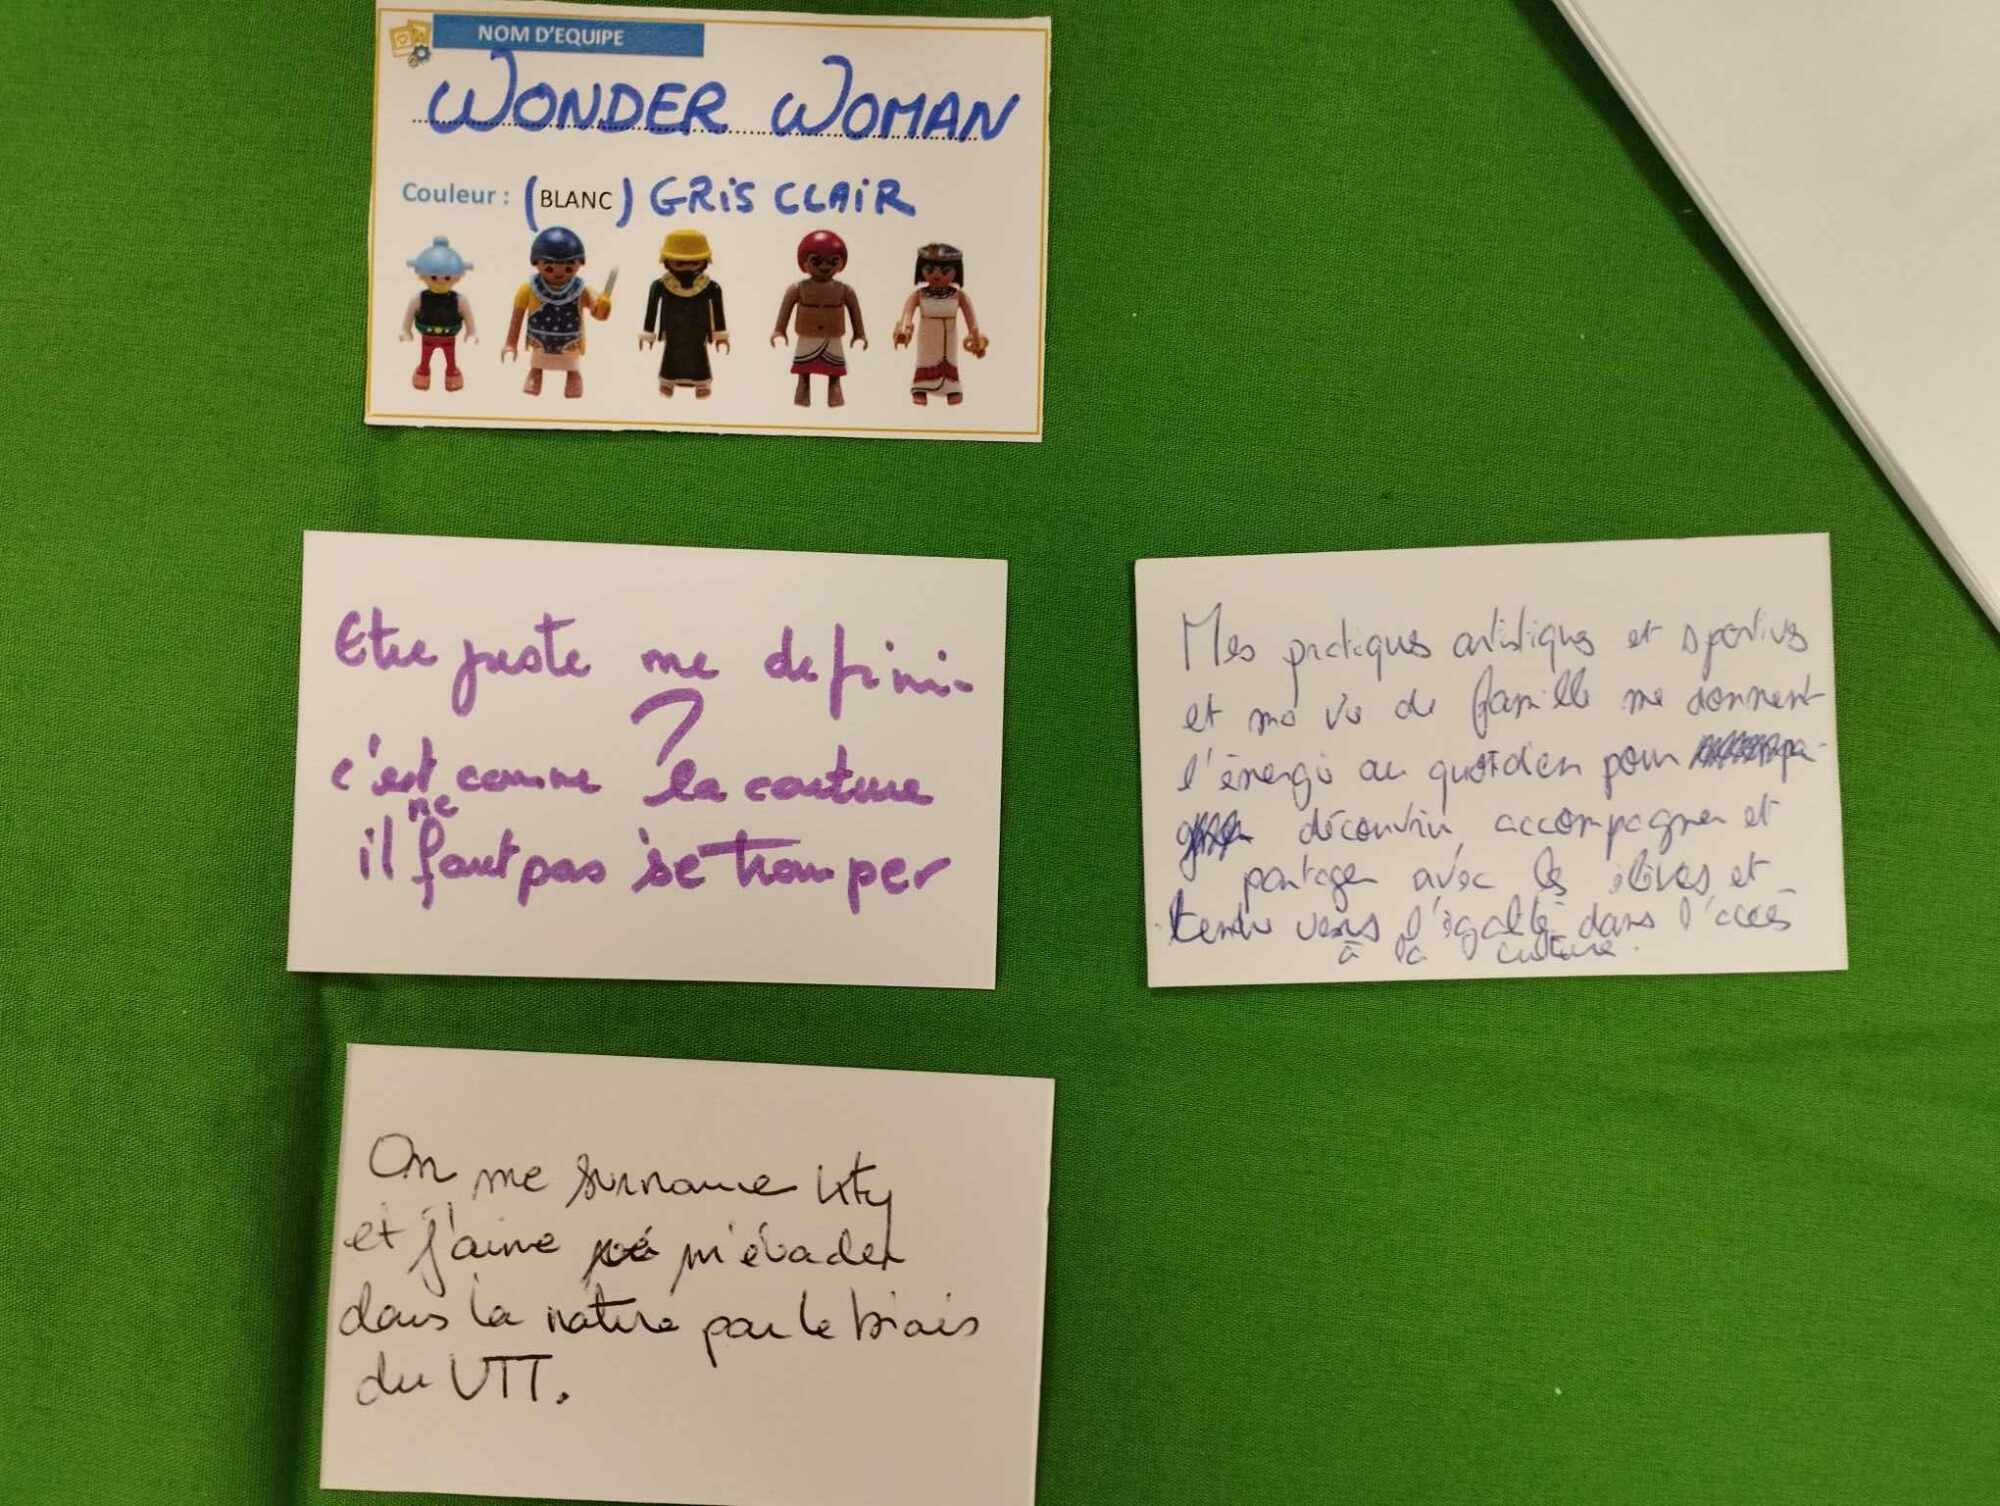 NOM D'EQUIPE
WONDER WOMAN
Couleur : (BLANC) GRIS CLAIR
Etre juste me defini-
?
c'est comme la couture
il ne faut pas se tromper
Mes pratiques artistiques et sportives
et ma vie de famille me donnent
l'énergie au quotidien pour
découvrir, accompagner et
partager avec les élèves et
tendre vers l'égalité dans l'accès
à la culture.
On me surnomme
et j'aime m'évader
dans la nature par le biais
du VTT.